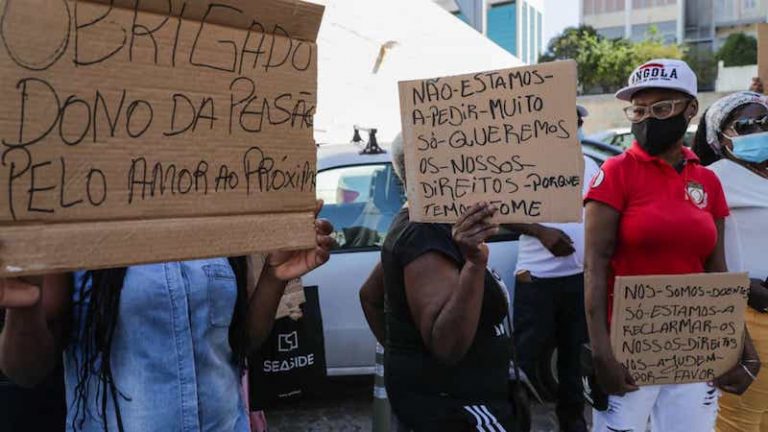 OBRIGADO
DONO DA PENSÃO
PELO AMOR AO PRÓXIM
NÃO-ESTAMOS
-A-PEDIR-MUITO
SÓ-QUEREMOS
OS-NOSSOS-
DIREITOS-PORQUE
TEMOS FOME
ANGOLA
NÓS-SOMOS-DOENTE
SÓ-ESTAMOS A
RECLARMAR-OS
NOSSOS-DIREITOS
NOS-AJUDEM
POR-FAVOR
SEASIDE